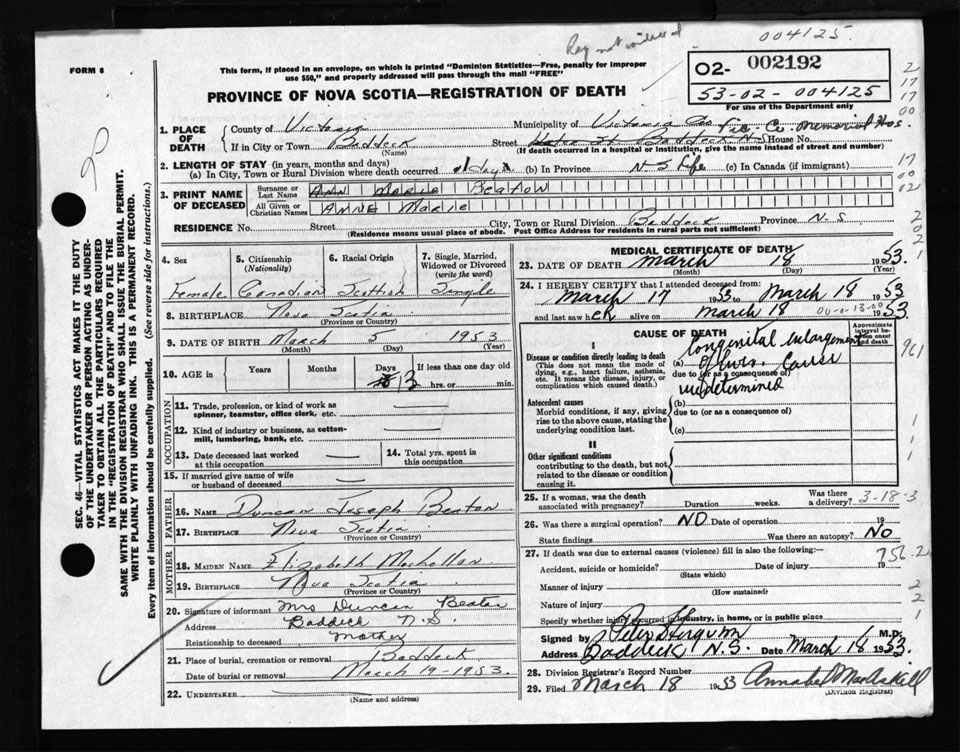 Reg not indexed
004125
FORM 6
This form, if placed in an envelope, on which is printed "Dominion Statistics—Free, penalty for improper
use $50," and properly addressed will pass through the mail "FREE"
02- 002192
53-02-004125
For use of the Department only
PROVINCE OF NOVA SCOTIA—REGISTRATION OF DEATH
1. PLACE OF DEATH
County of Victoria Municipality of Victoria Co
Vic. Co. Memorial Hos.
If in City or Town Baddeck (Name) Street Baddeck N.S. House No.
(If death occurred in a hospital or institution, give the name instead of street and number)
2. LENGTH OF STAY (in years, months and days)
(a) In City, Town or Rural Division where death occurred 1 day (b) In Province N S Life (c) In Canada (if immigrant)
3. PRINT NAME OF DECEASED
Surname or Last Name Ann Marie Beaton
All Given or Christian Names Anne Marie
RESIDENCE No. Street City, Town or Rural Division Baddeck Province N.S
(Residence means usual place of abode. Post Office Address for residents in rural parts not sufficient)
SEC. 46—VITAL STATISTICS ACT MAKES IT THE DUTY
OF THE UNDERTAKER OR PERSON ACTING AS UNDER-
TAKER TO OBTAIN ALL THE PARTICULARS REQUIRED
IN THE "REGISTRATION OF DEATH" AND TO FILE THE
SAME WITH THE DIVISION REGISTRAR WHO SHALL ISSUE THE BURIAL PERMIT.
WRITE PLAINLY WITH UNFADING INK. THIS IS A PERMANENT RECORD.
Every item of information should be carefully supplied. (See reverse side for instructions.)
4. Sex
Female
5. Citizenship (Nationality)
Canadian
6. Racial Origin
Scottish
7. Single, Married, Widowed or Divorced (write the word)
Single
8. BIRTHPLACE Nova Scotia
(Province or Country)
9. DATE OF BIRTH March 5 1953
(Month) (Day) (Year)
10. AGE in Years Months Days If less than one day old
13 hrs. or min.
OCCUPATION
11. Trade, profession, or kind of work as
spinner, teamster, office clerk, etc.
12. Kind of industry or business, as cotton-
mill, lumbering, bank, etc.
13. Date deceased last worked at this occupation
14. Total yrs. spent in this occupation
15. If married give name of wife
or husband of deceased
FATHER
16. NAME Duncan Joseph Beaton
17. BIRTHPLACE Nova Scotia
(Province or Country)
MOTHER
18. MAIDEN NAME Elizabeth MacLellan
19. BIRTHPLACE Nova Scotia
(Province or Country)
20. Signature of informant Mrs Duncan Beaton
Address Baddeck N.S.
Relationship to deceased Mother
21. Place of burial, cremation or removal Baddeck
Date of burial or removal March 19-1953.
22. UNDERTAKER
(Name and address)
MEDICAL CERTIFICATE OF DEATH
23. DATE OF DEATH March 18 1953
(Month) (Day) (Year)
24. I HEREBY CERTIFY that I attended deceased from:
March 17 1953 to March 18 1953
and last saw her alive on March 18 1953.
CAUSE OF DEATH
Approximate interval between onset and death
I
Disease or condition directly leading to death
(This does not mean the mode of
dying, e.g., heart failure, asthenia,
etc. It means the disease, injury, or
complication which caused death.)
(a) Congenital enlargement
of liver. Cause
due to (or as a consequence of)
undetermined
Antecedent causes
Morbid conditions, if any, giving
rise to the above cause, stating the
underlying condition last.
(b)
due to (or as a consequence of)
(c)
II
Other significant conditions
contributing to the death, but not
related to the disease or condition
causing it.
25. If a woman, was the death
associated with pregnancy? Duration weeks. Was there a delivery? 3-18-3
26. Was there a surgical operation? NO Date of operation 19
State findings Was there an autopsy? No
27. If death was due to external causes (violence) fill in also the following:— 756.2
Accident, suicide or homicide? Date of injury 19
(State which)
Manner of injury
(How sustained)
Nature of injury
Specify whether injury occurred in industry, in home, or in public place
Signed by M.D.
Address Baddeck N.S. Date March 18 1953.
28. Division Registrar's Record Number
29. Filed March 18 1953 Annabel MacAskill
(Division Registrar)